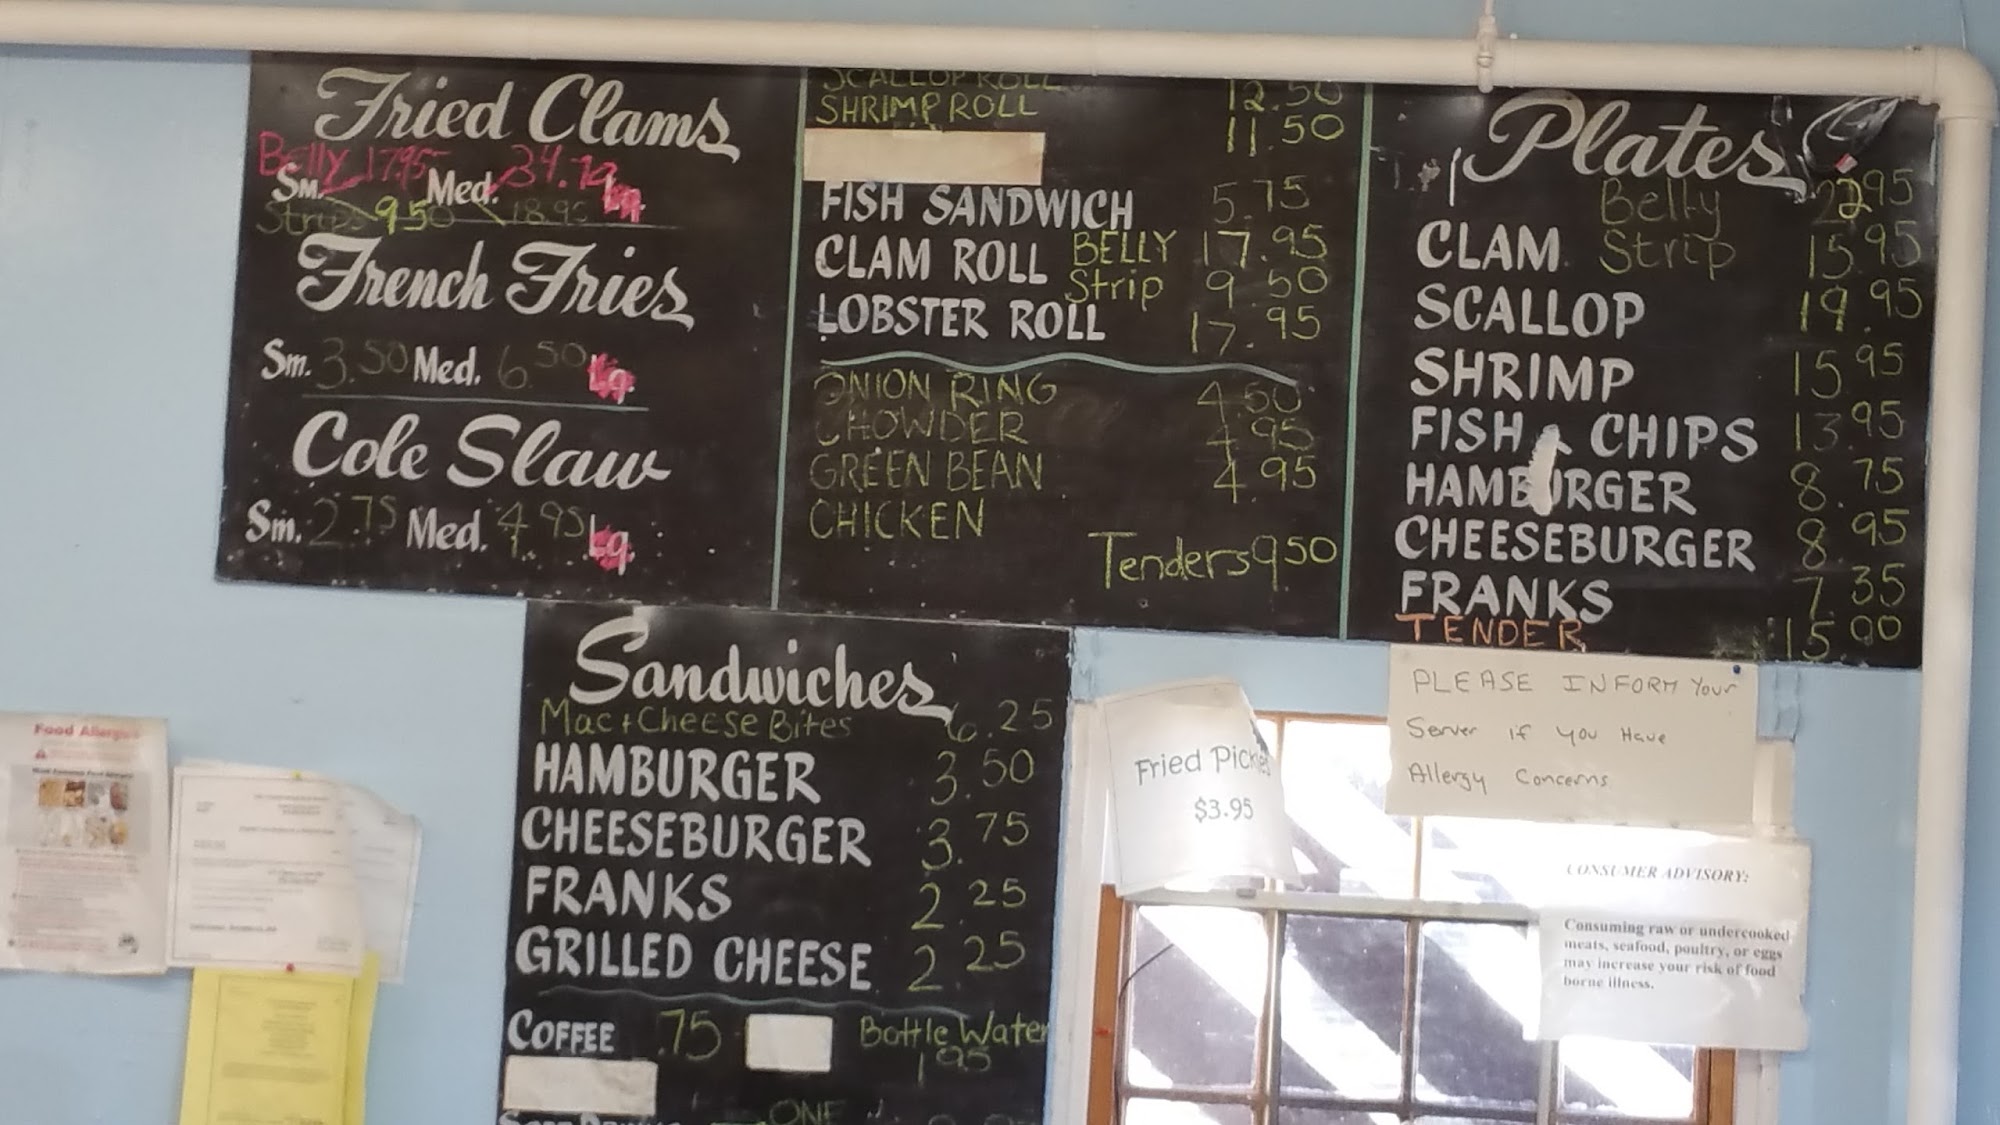 Fried Clams
Belly 17.95 34.
Sm. Med. Lg.
Strips 9 50 18.95
French Fries
Sm. 3.50 Med. 6.50 Lg.
Cole Slaw
Sm. 2.75 Med. 4.95 Lg.
SCALLOP ROLL 12.50
SHRIMP ROLL 11.50
FISH SANDWICH 5.75
CLAM ROLL BELLY 17.95
Strip 9.50
LOBSTER ROLL 17.95
ONION RING 4.50
CHOWDER 4.95
GREEN BEAN 4.95
CHICKEN
Tenders 9 50
Plates
Belly 2295
CLAM Strip 15.95
SCALLOP 19.95
SHRIMP 15.95
FISH & CHIPS 13.95
HAMBURGER 8.75
CHEESEBURGER 8.95
FRANKS 7.35
TENDER 15.00
Sandwiches
Mac + Cheese Bites 6.25
HAMBURGER 3.50
CHEESEBURGER 3.75
FRANKS 2.25
GRILLED CHEESE 2.25
COFFEE .75 Bottle Water
1 95
ONE
Fried Pickles
$3.95
PLEASE INFORM Your
Server if you Have
Allergy Concerns
CONSUMER ADVISORY:
Consuming raw or undercooked
meats, seafood, poultry, or eggs
may increase your risk of food
borne illness.
Food Allergies